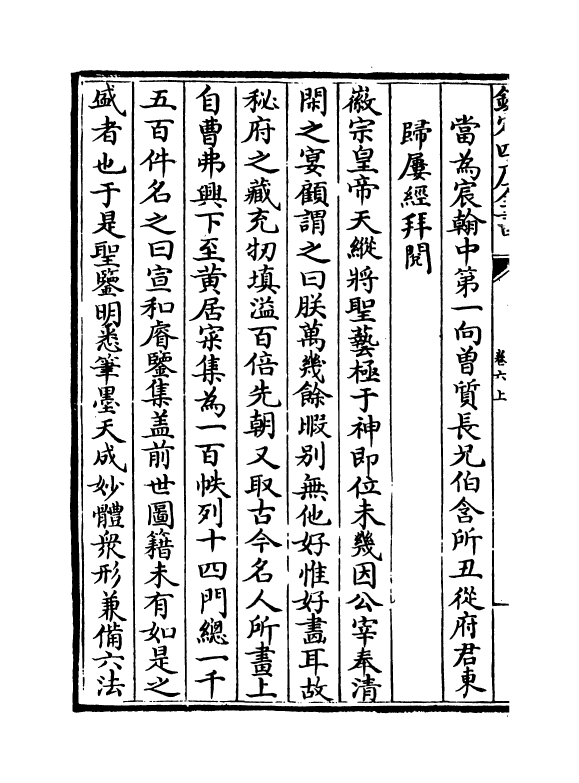 欽定四庫全書
卷六上
當為宸翰中第一向曽質長兄伯含所丑從府君東
歸屢經拜閱
徽宗皇帝天縱將聖藝極于神即位未幾因公宰奉清
閑之宴顧謂之曰朕萬幾餘暇别無他好惟好畫耳故
秘府之藏充牣填溢百倍先朝又取古今名人所畫上
自曹弗興下至黄居寀集為一百帙列十四門總一千
五百件名之曰宣和睿鑒集盖前世圖籍未有如是之
盛者也于是聖鑒明悉筆墨天成妙體衆形兼備六法